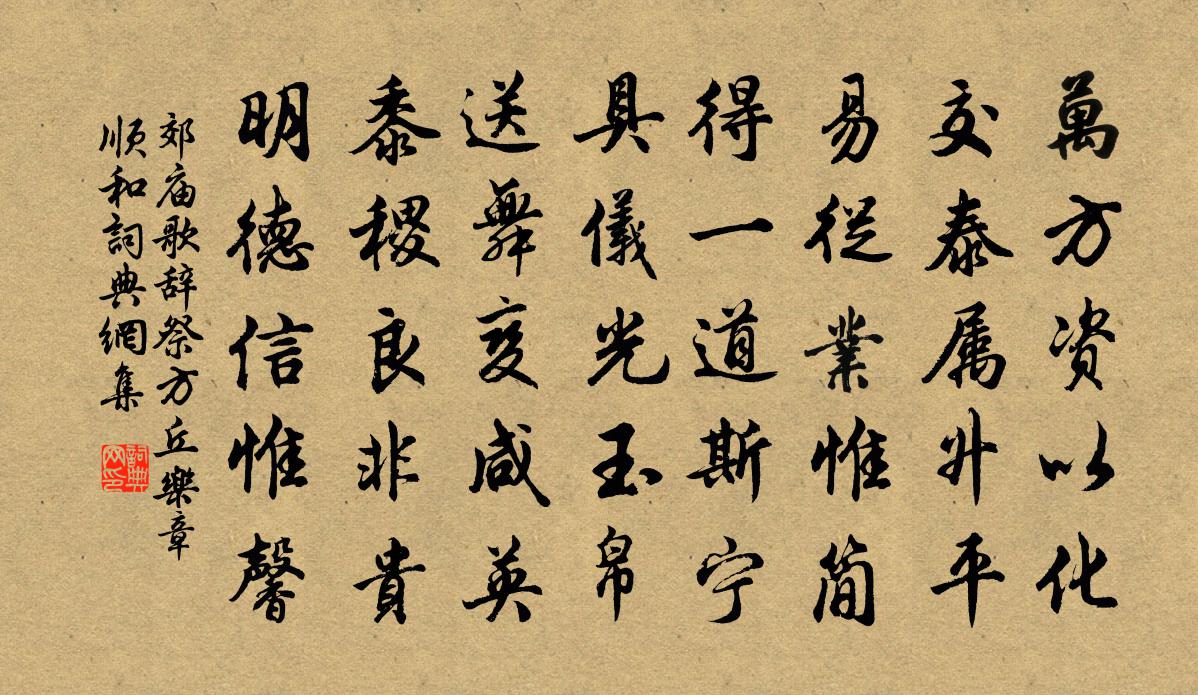 萬方资以化
交泰属升平
易從業惟简
得一道斯宁
具儀光玉帛
送舞变咸英
黍稷良非貴
明德信惟馨
郊庙歌辞祭方丘樂章
順和詞典網集
詞典
网印